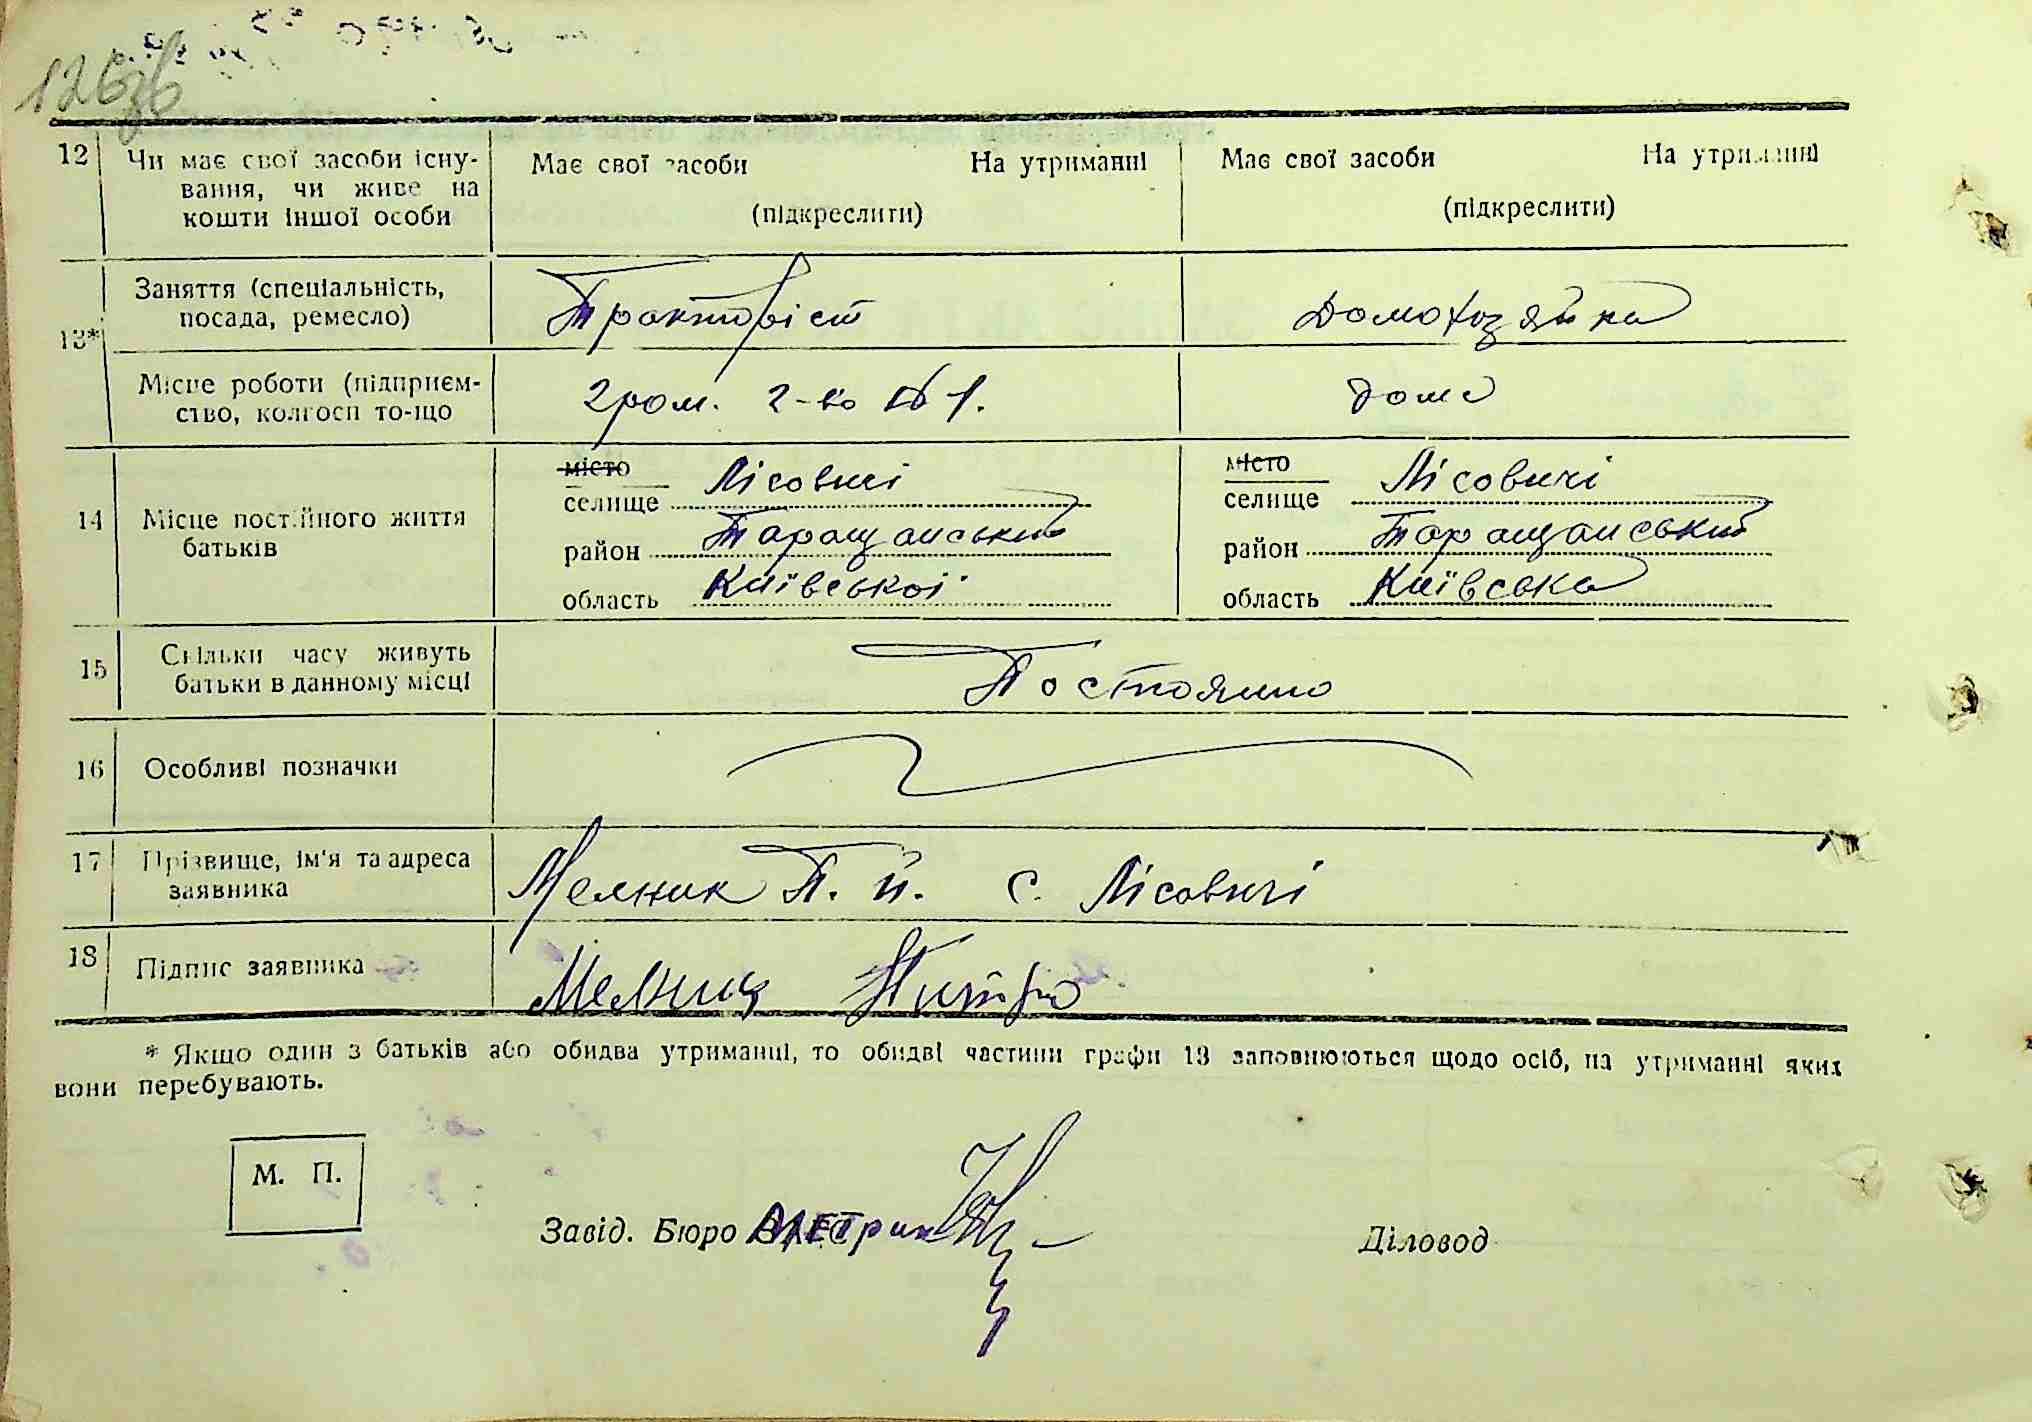 126зв
12 Чи має свої засоби існу-
вання, чи живе на
кошти іншої особи
Має свої засоби На утриманні
(підкреслити)
Має свої засоби На утриманні
(підкреслити)
13*
Заняття (спеціальність,
посада, ремесло)
Тракторіст
Домохозяйка
Місце роботи (підприєм-
ство, колгосп то-що
Гром. г-во №1.
дома
14 Місце постійного життя
батьків
місто
селище Лісовичі
район Таращанський
область Київської
місто
селище Лісовичі
район Таращанський
область Київська
15 Скільки часу живуть
батьки в данному місці
Постоянно
16 Особливі позначки
17 Прізвище, ім'я та адреса
заявника
Мелник П. Й. с. Лісовичі
18 Підпис заявника
Мелник Питро
* Якщо один з батьків або обидва утриманні, то обидві частини графи 13 заповнюються щодо осіб, на утриманні яких
вони перебувають.
М. П.
Завід. Бюро
Діловод